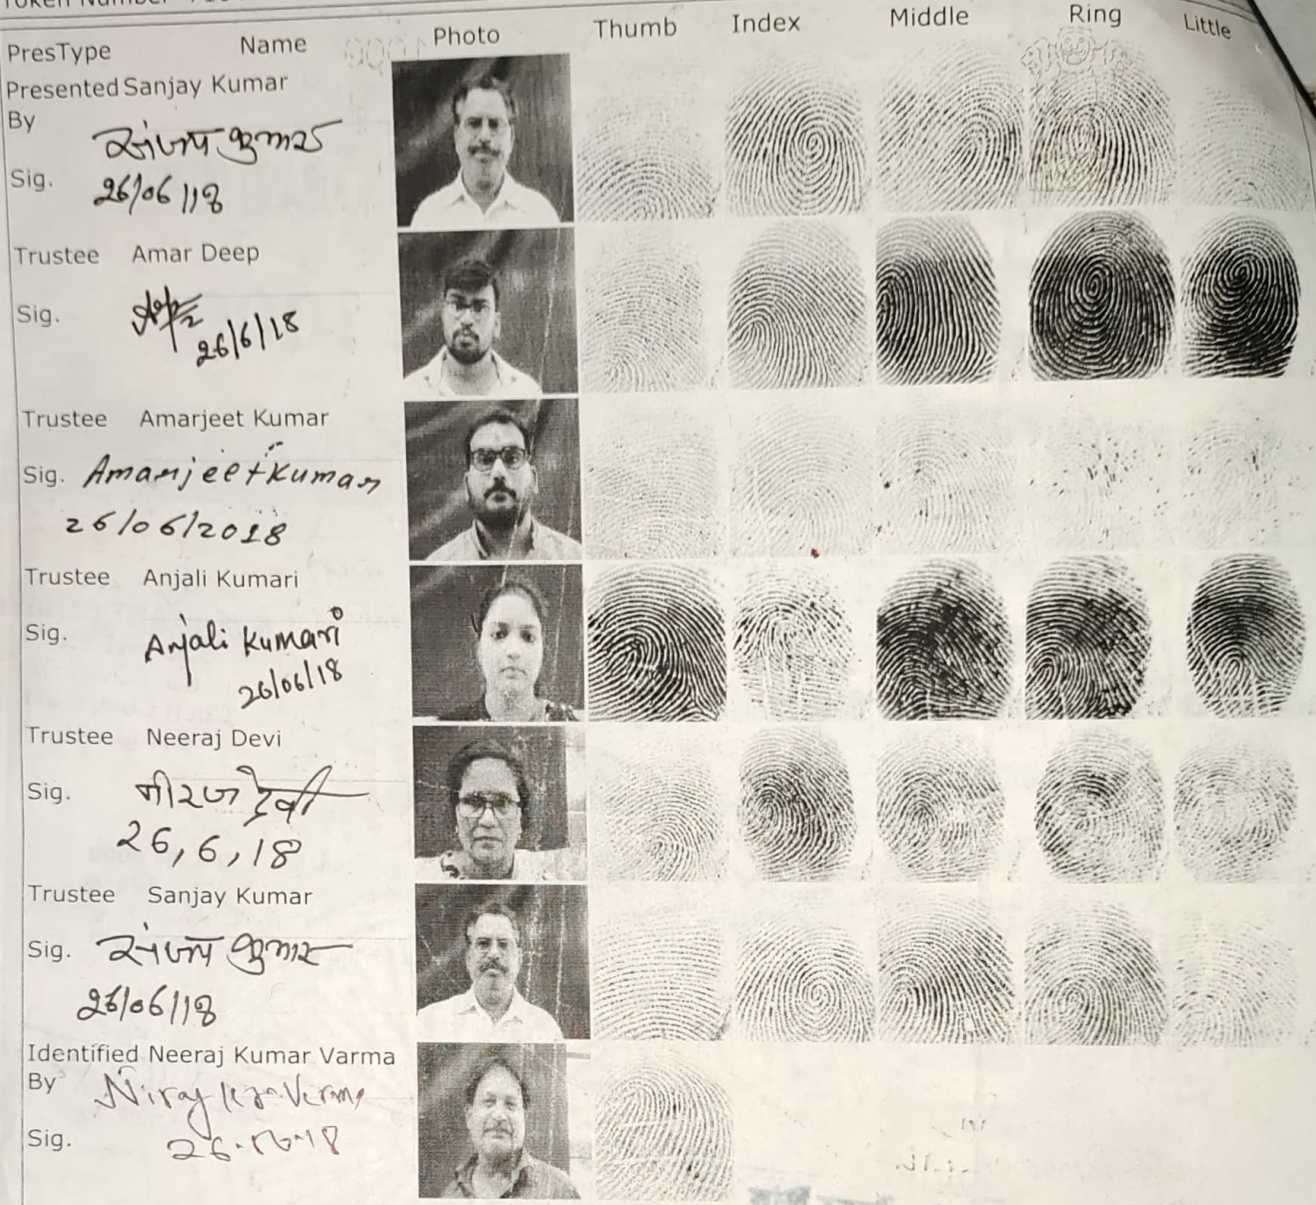 Token Number
PresType Name Photo Thumb Index Middle Ring Little
Presented Sanjay Kumar
By
संजय कुमार
Sig.
26/06/18
Trustee Amar Deep
Sig.
26/6/18
Trustee Amarjeet Kumar
Sig. Amarjeet Kumar
26/06/2018
Trustee Anjali Kumari
Sig. Anjali Kumari
26/06/18
Trustee Neeraj Devi
Sig. नीरज देवी
26,6,18
Trustee Sanjay Kumar
Sig. संजय कुमार
26/06/18
Identified Neeraj Kumar Varma
By Niraj Kr. Verma
Sig. 26.06.18